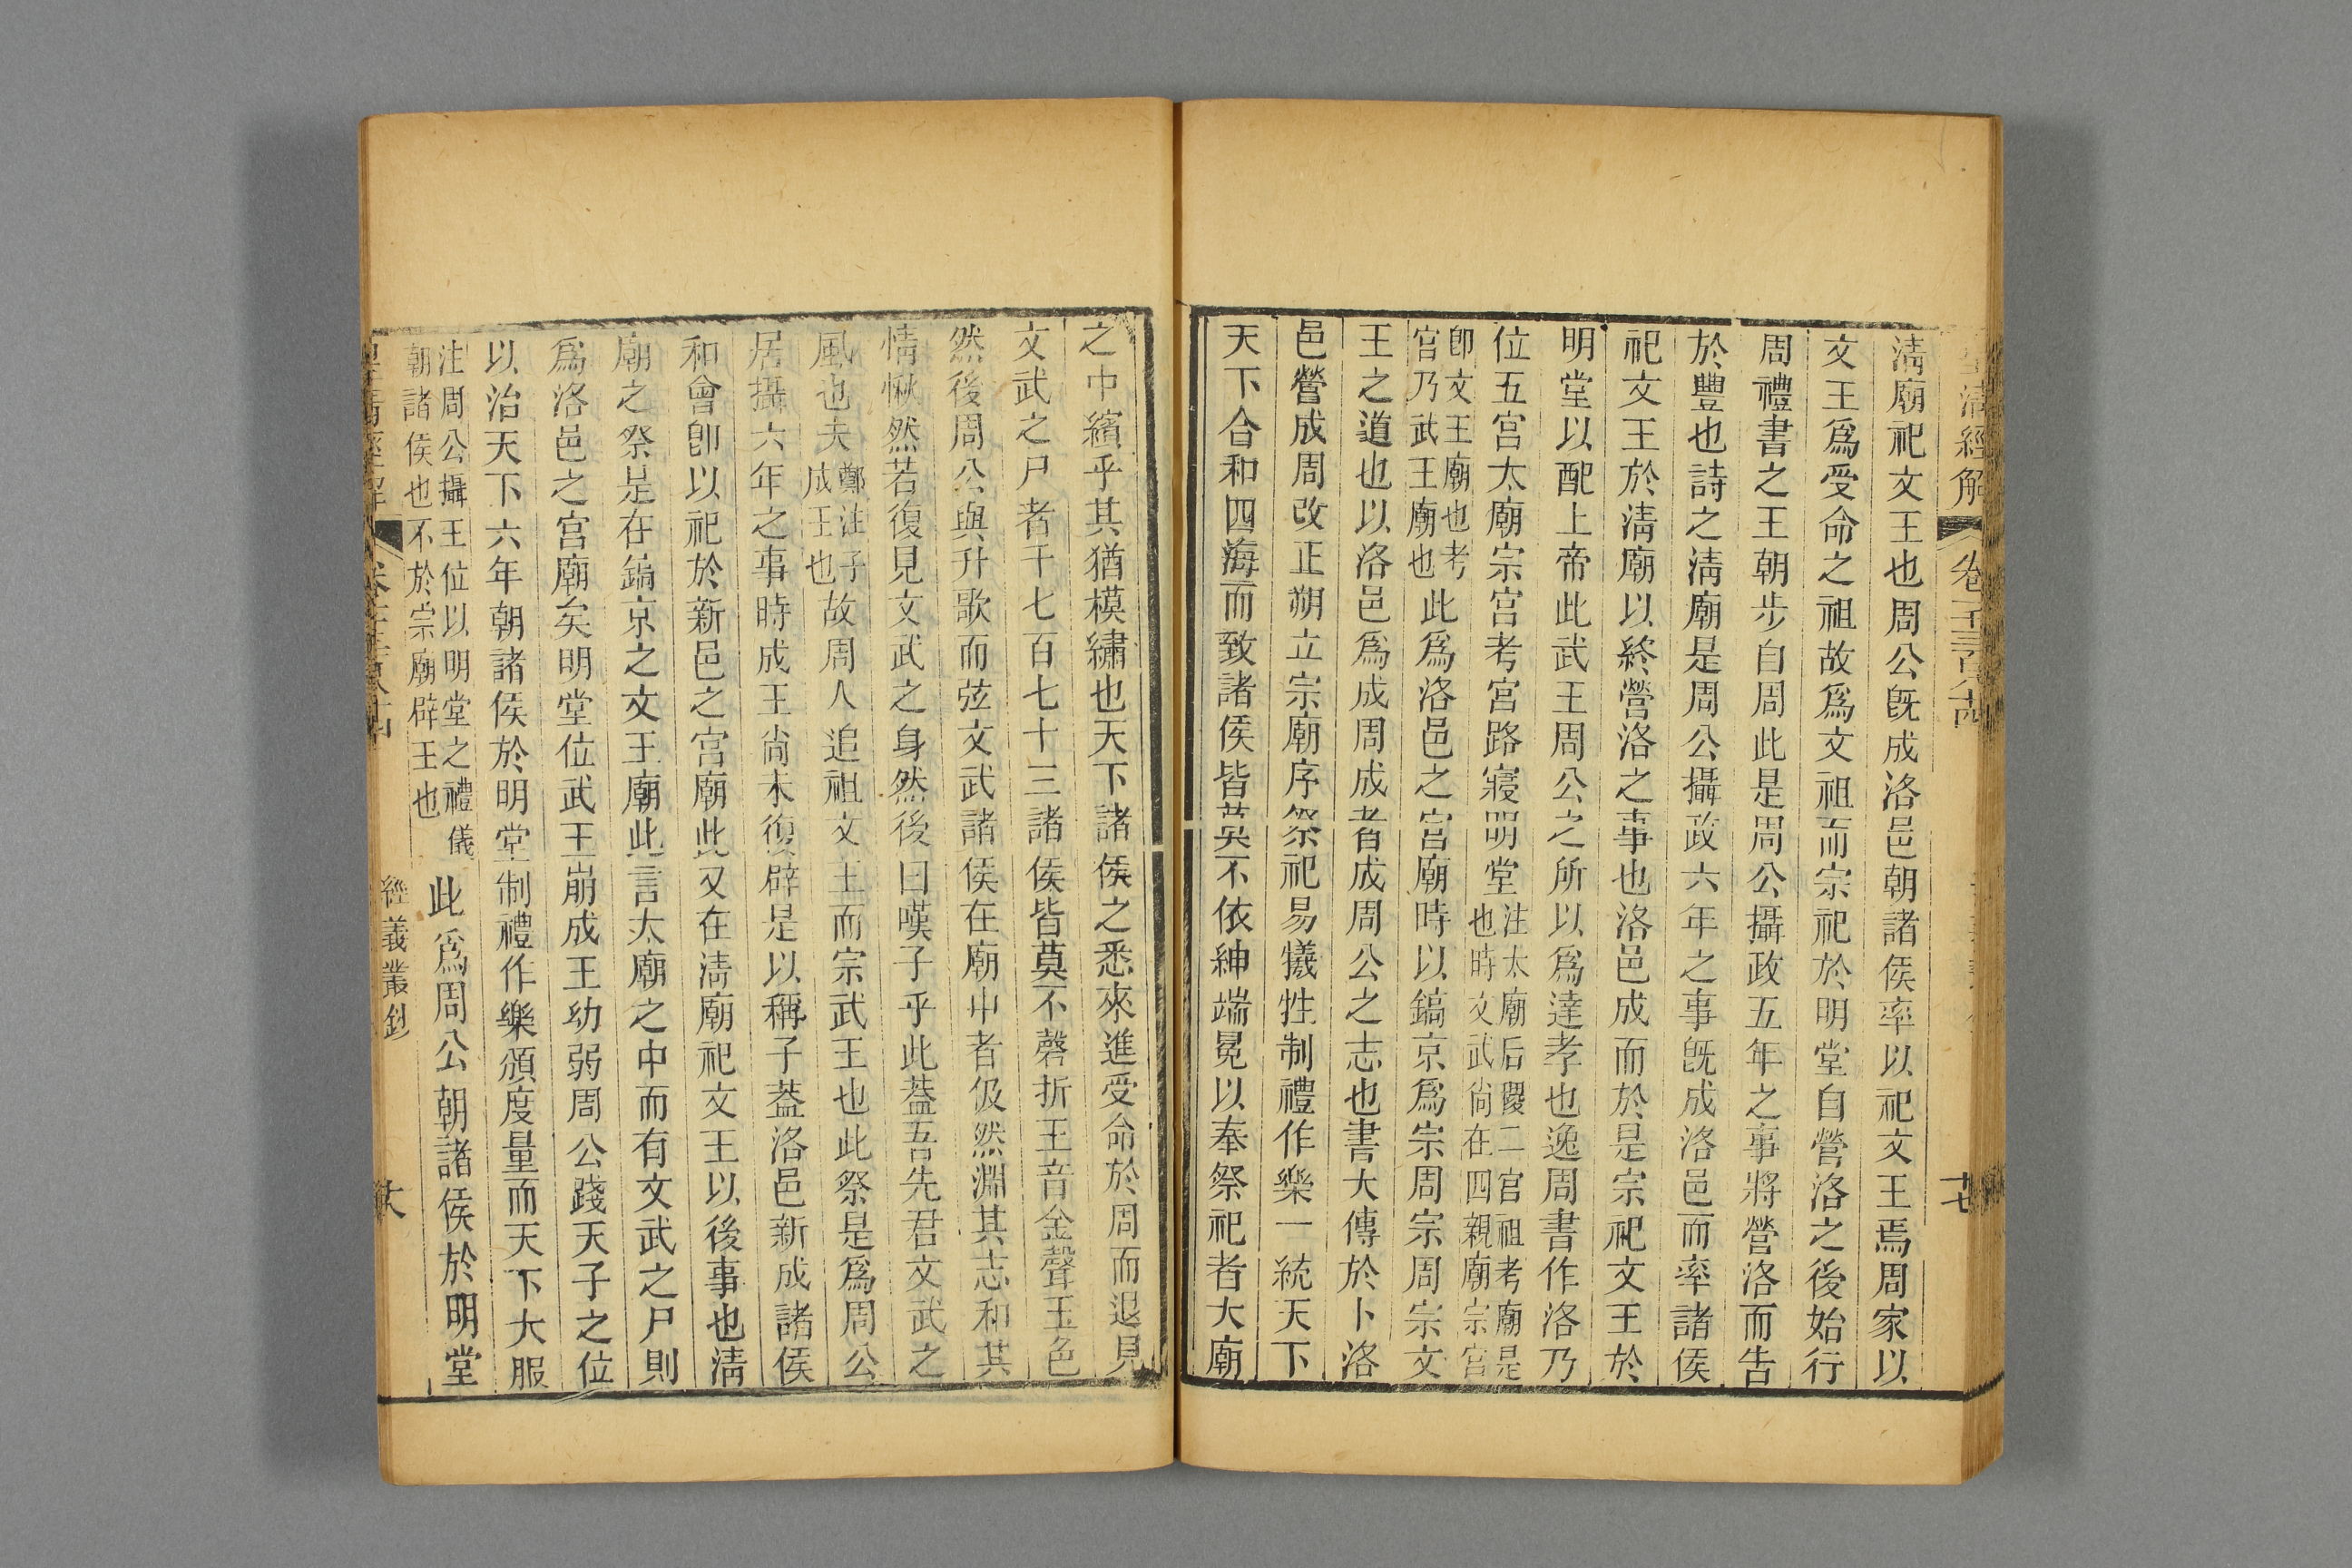 清經解
卷一千三百八十四
十七
清廟祀文王也周公旣成洛邑朝諸侯率以祀文王焉周家以
文王爲受命之祖故爲文祖而宗祀於明堂自營洛之後始行
周禮書之王朝步自周此是周公攝政五年之事將營洛而告
於豐也詩之淸廟是周公攝政六年之事旣成洛邑而率諸侯
祀文王於淸廟以終營洛之事也洛邑成而於是宗祀文王於
明堂以配上帝此武王周公之所以爲達孝也逸周書作洛乃
位五宮太廟宗宮考宮路寢明堂注太廟后稷二宮祖考廟是也時文武尙在四親廟宗宮
卽文王廟也考宮乃武王廟也此爲洛邑之宮廟時以鎬京爲宗周宗周宗文
王之道也以洛邑爲成周成者成周公之志也書大傳於卜洛
邑營成周改正朔立宗廟序祭祀易犧牲制禮作樂一統天下
天下合和四海而致諸侯皆莫不依紳端冕以奉祭祀者大廟
之中繽乎其猶模繡也天下諸侯之悉來進受命於周而退見
文武之尸者千七百七十三諸侯皆莫不磬折玉音金聲玉色
然後周公與升歌而弦文武諸侯在廟中者伋然淵其志和其
情愀然若復見文武之身然後曰嗟子乎此蓋吾先君文武之
風也夫鄭注子成王也故周人追祖文王而宗武王也此祭是爲周公
居攝六年之事時成王尙未復辟是以稱子蓋洛邑新成諸侯
和會卽以祀於新邑之宮廟此又在淸廟祀文王以後事也淸
廟之祭是在鎬京之文王廟此言太廟之中而有文武之尸則
爲洛邑之宮廟矣明堂位武王崩成王幼弱周公踐天子之位
以治天下六年朝諸侯於明堂制禮作樂頒度量而天下大服
注周公攝王位以明堂之禮儀朝諸侯也不於宗廟辟王也此爲周公朝諸侯於明堂
皇淸經解
經義叢鈔
大